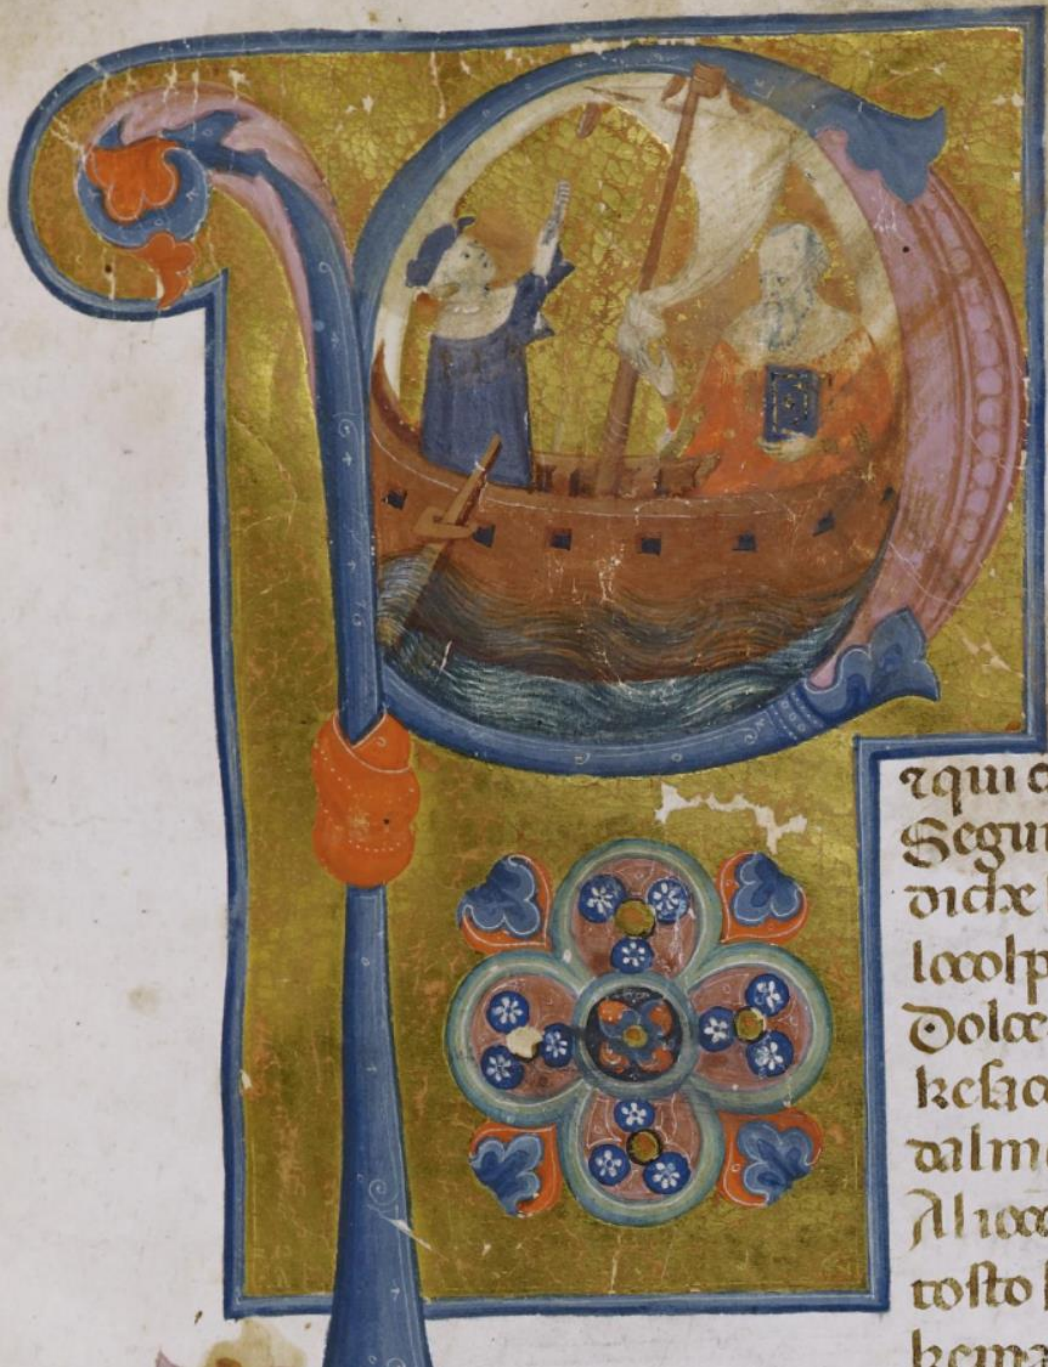 P
⁊qui c
Segui
diche l
locolp
Dolce
kesac
dalme
Alioc
tosto
kema